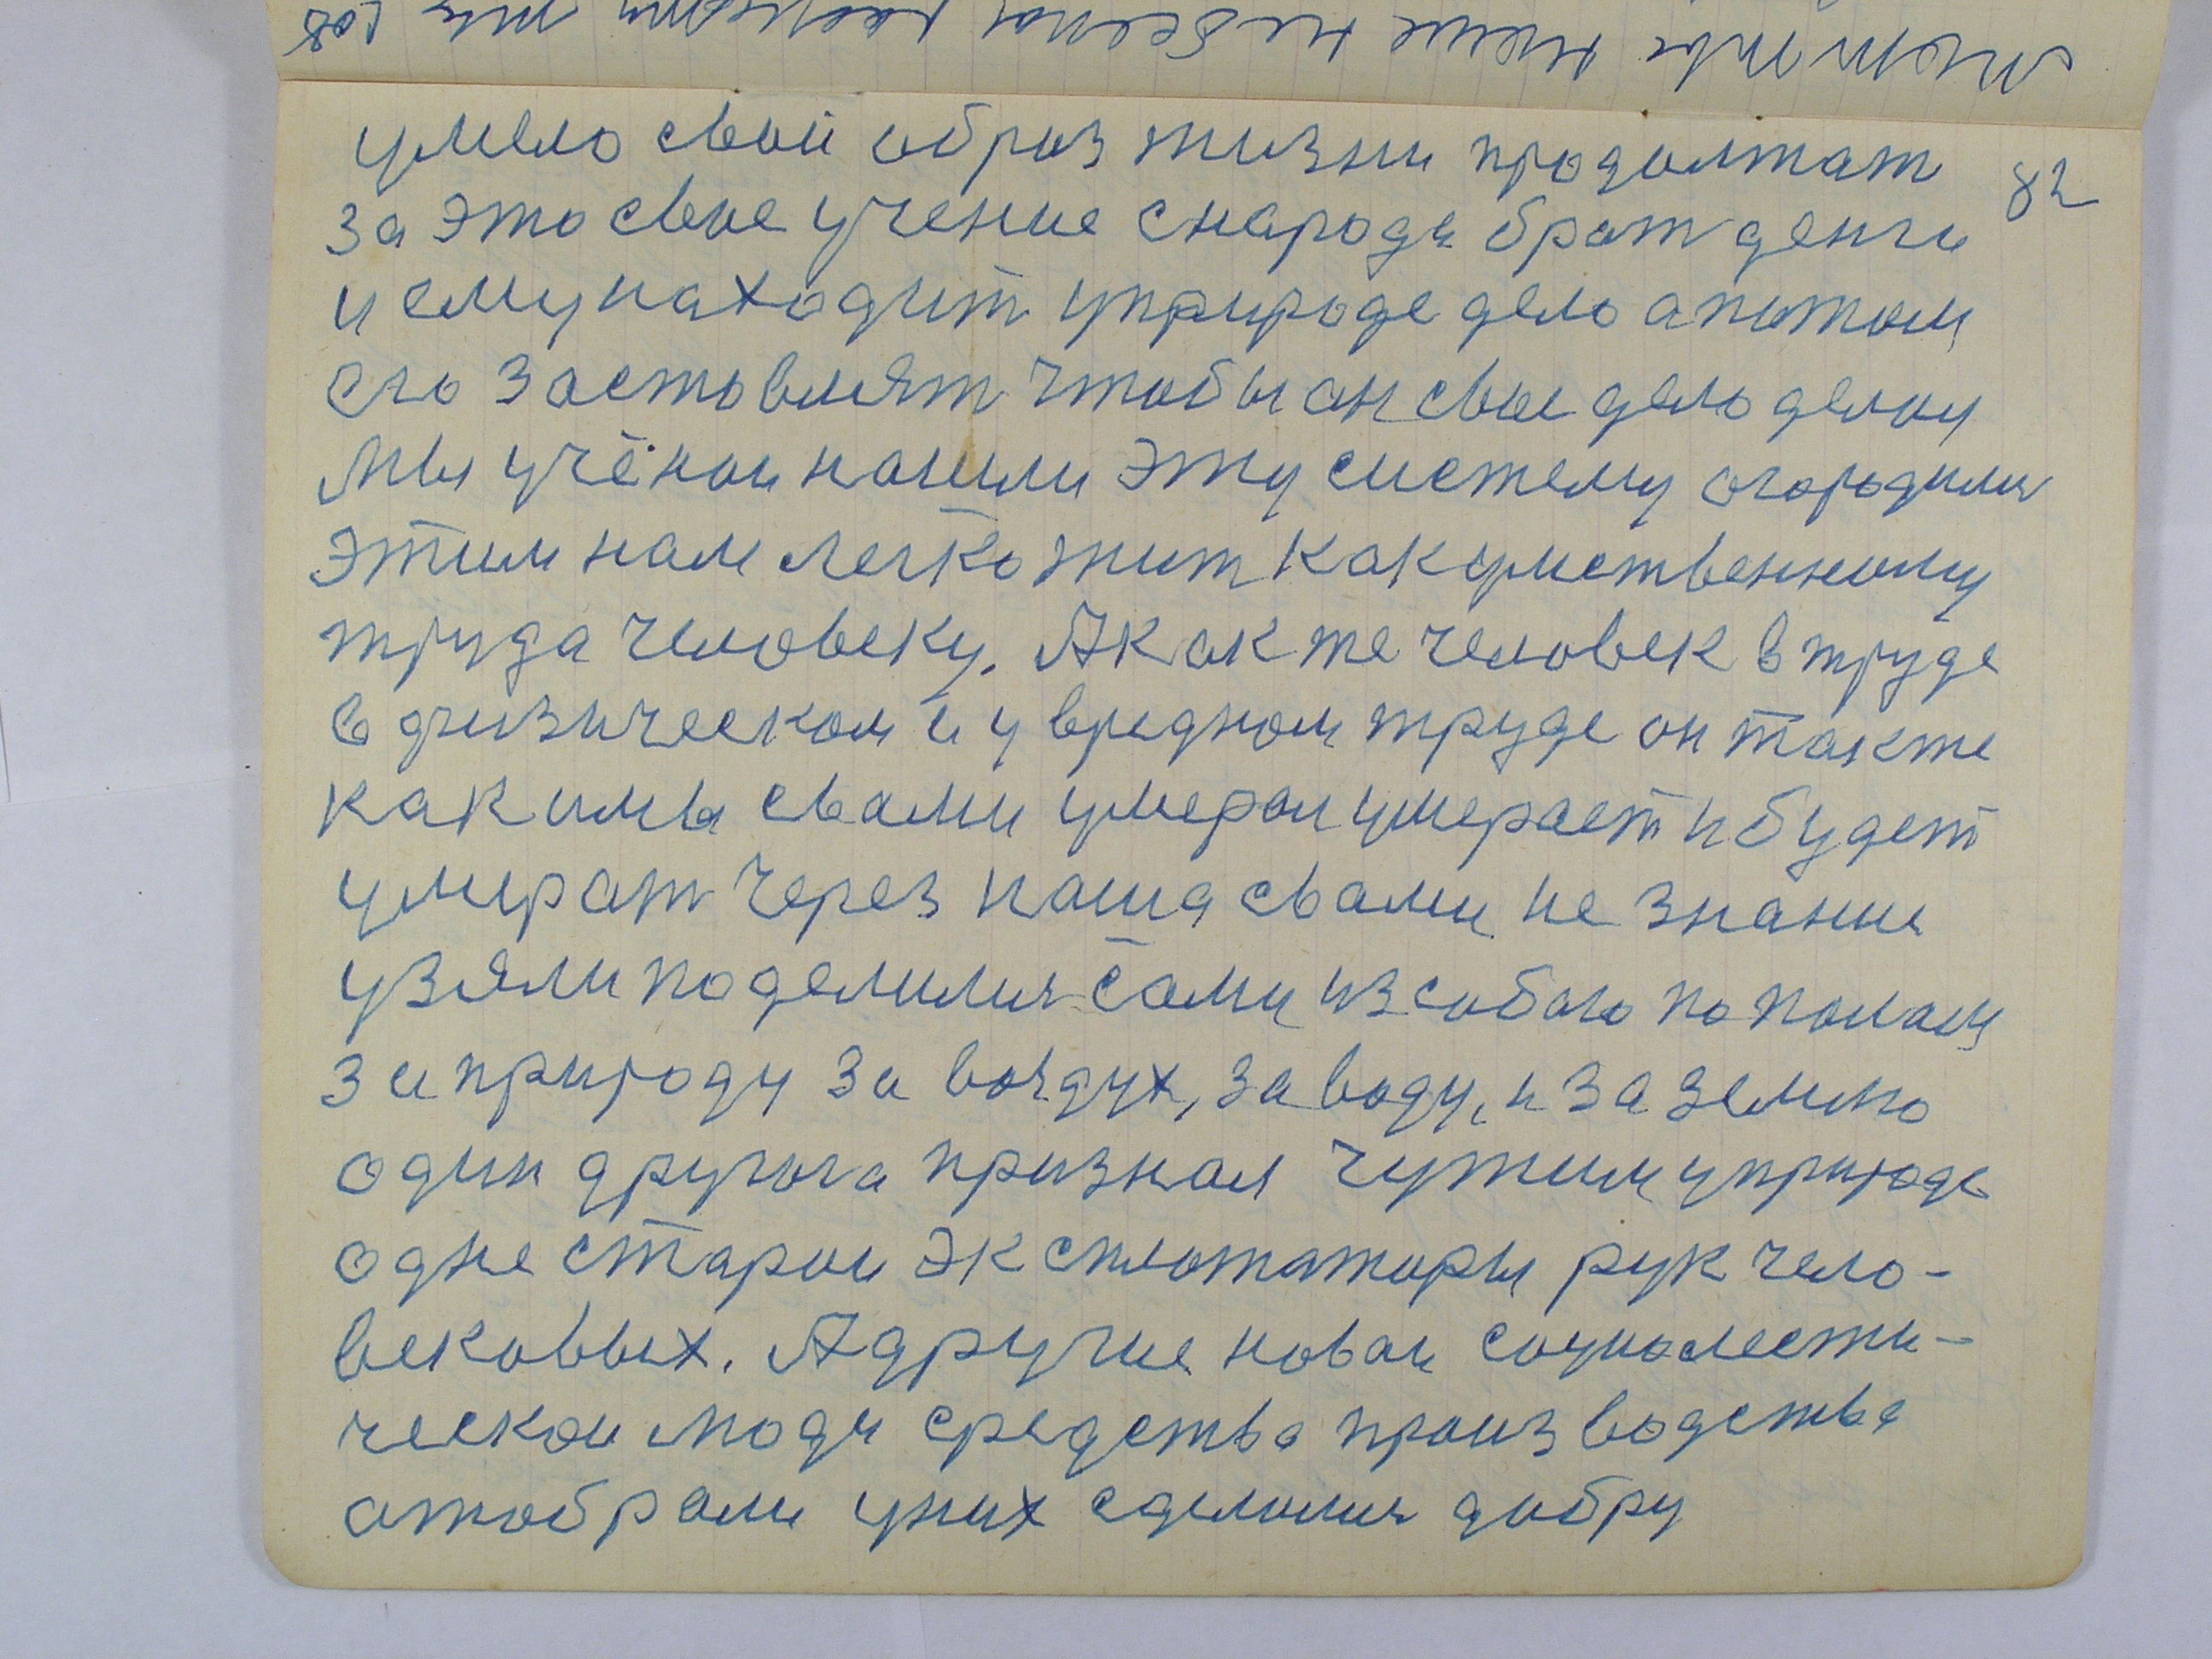 умело свой образ жизни продолжат
82
за это свое учение снарода брат денги
и ему находит уприроде дело апотом
его заставлят чтобы он свое дело делал
мы учёнои нашли эту систему огородилис
этим нам легко жит как умственному
труда человеку. А как же человек в труде
в физическом и у вредном труде он также
как имы свами умерал умерает и будет
умират через наша свами не знание
узяли поделилис сами из собою по полам
за природу за воздух, за воду, и за землю
один другога признал чужим уприроде
одне старои эксплотаторы рук чело-
вековых. А другие новои социалести-
ческои люди средства производства
атобрали уних сделалис добру